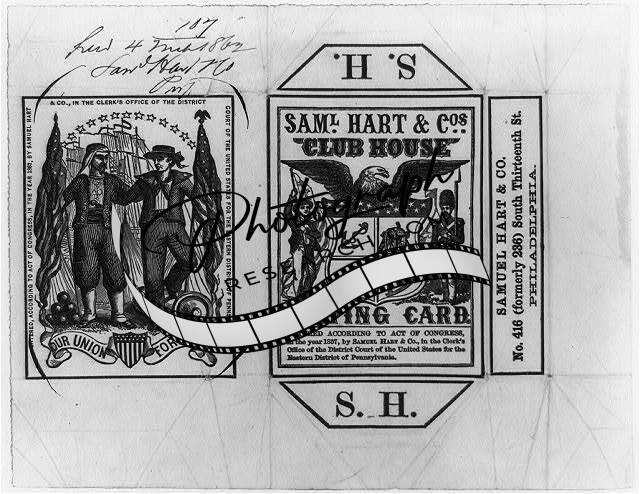 107
4
1862
Saml Hart & Co
& CO., IN THE CLERK'S OFFICE OF THE DISTRICT
COURT OF THE UNITED STATES FOR THE EASTERN DISTRICT OF PENN
ENTERED, ACCORDING TO ACT OF CONGRESS, IN THE YEAR BY SAMUEL HART
OUR UNION FOR
S. H.
SAML. HART & COS
CLUB HOUSE
ING CARD
ACCORDING TO ACT OF CONGRESS,
in the year 1857, by SAMUEL HART & CO., in the Clerk's
Office of the District Court of the United States for the
Eastern District of Pennsylvania.
S. H.
SAMUEL HART & CO.
No. 416 (formerly 236) South Thirteenth St.
PHILADELPHIA.
Photograph
RESE